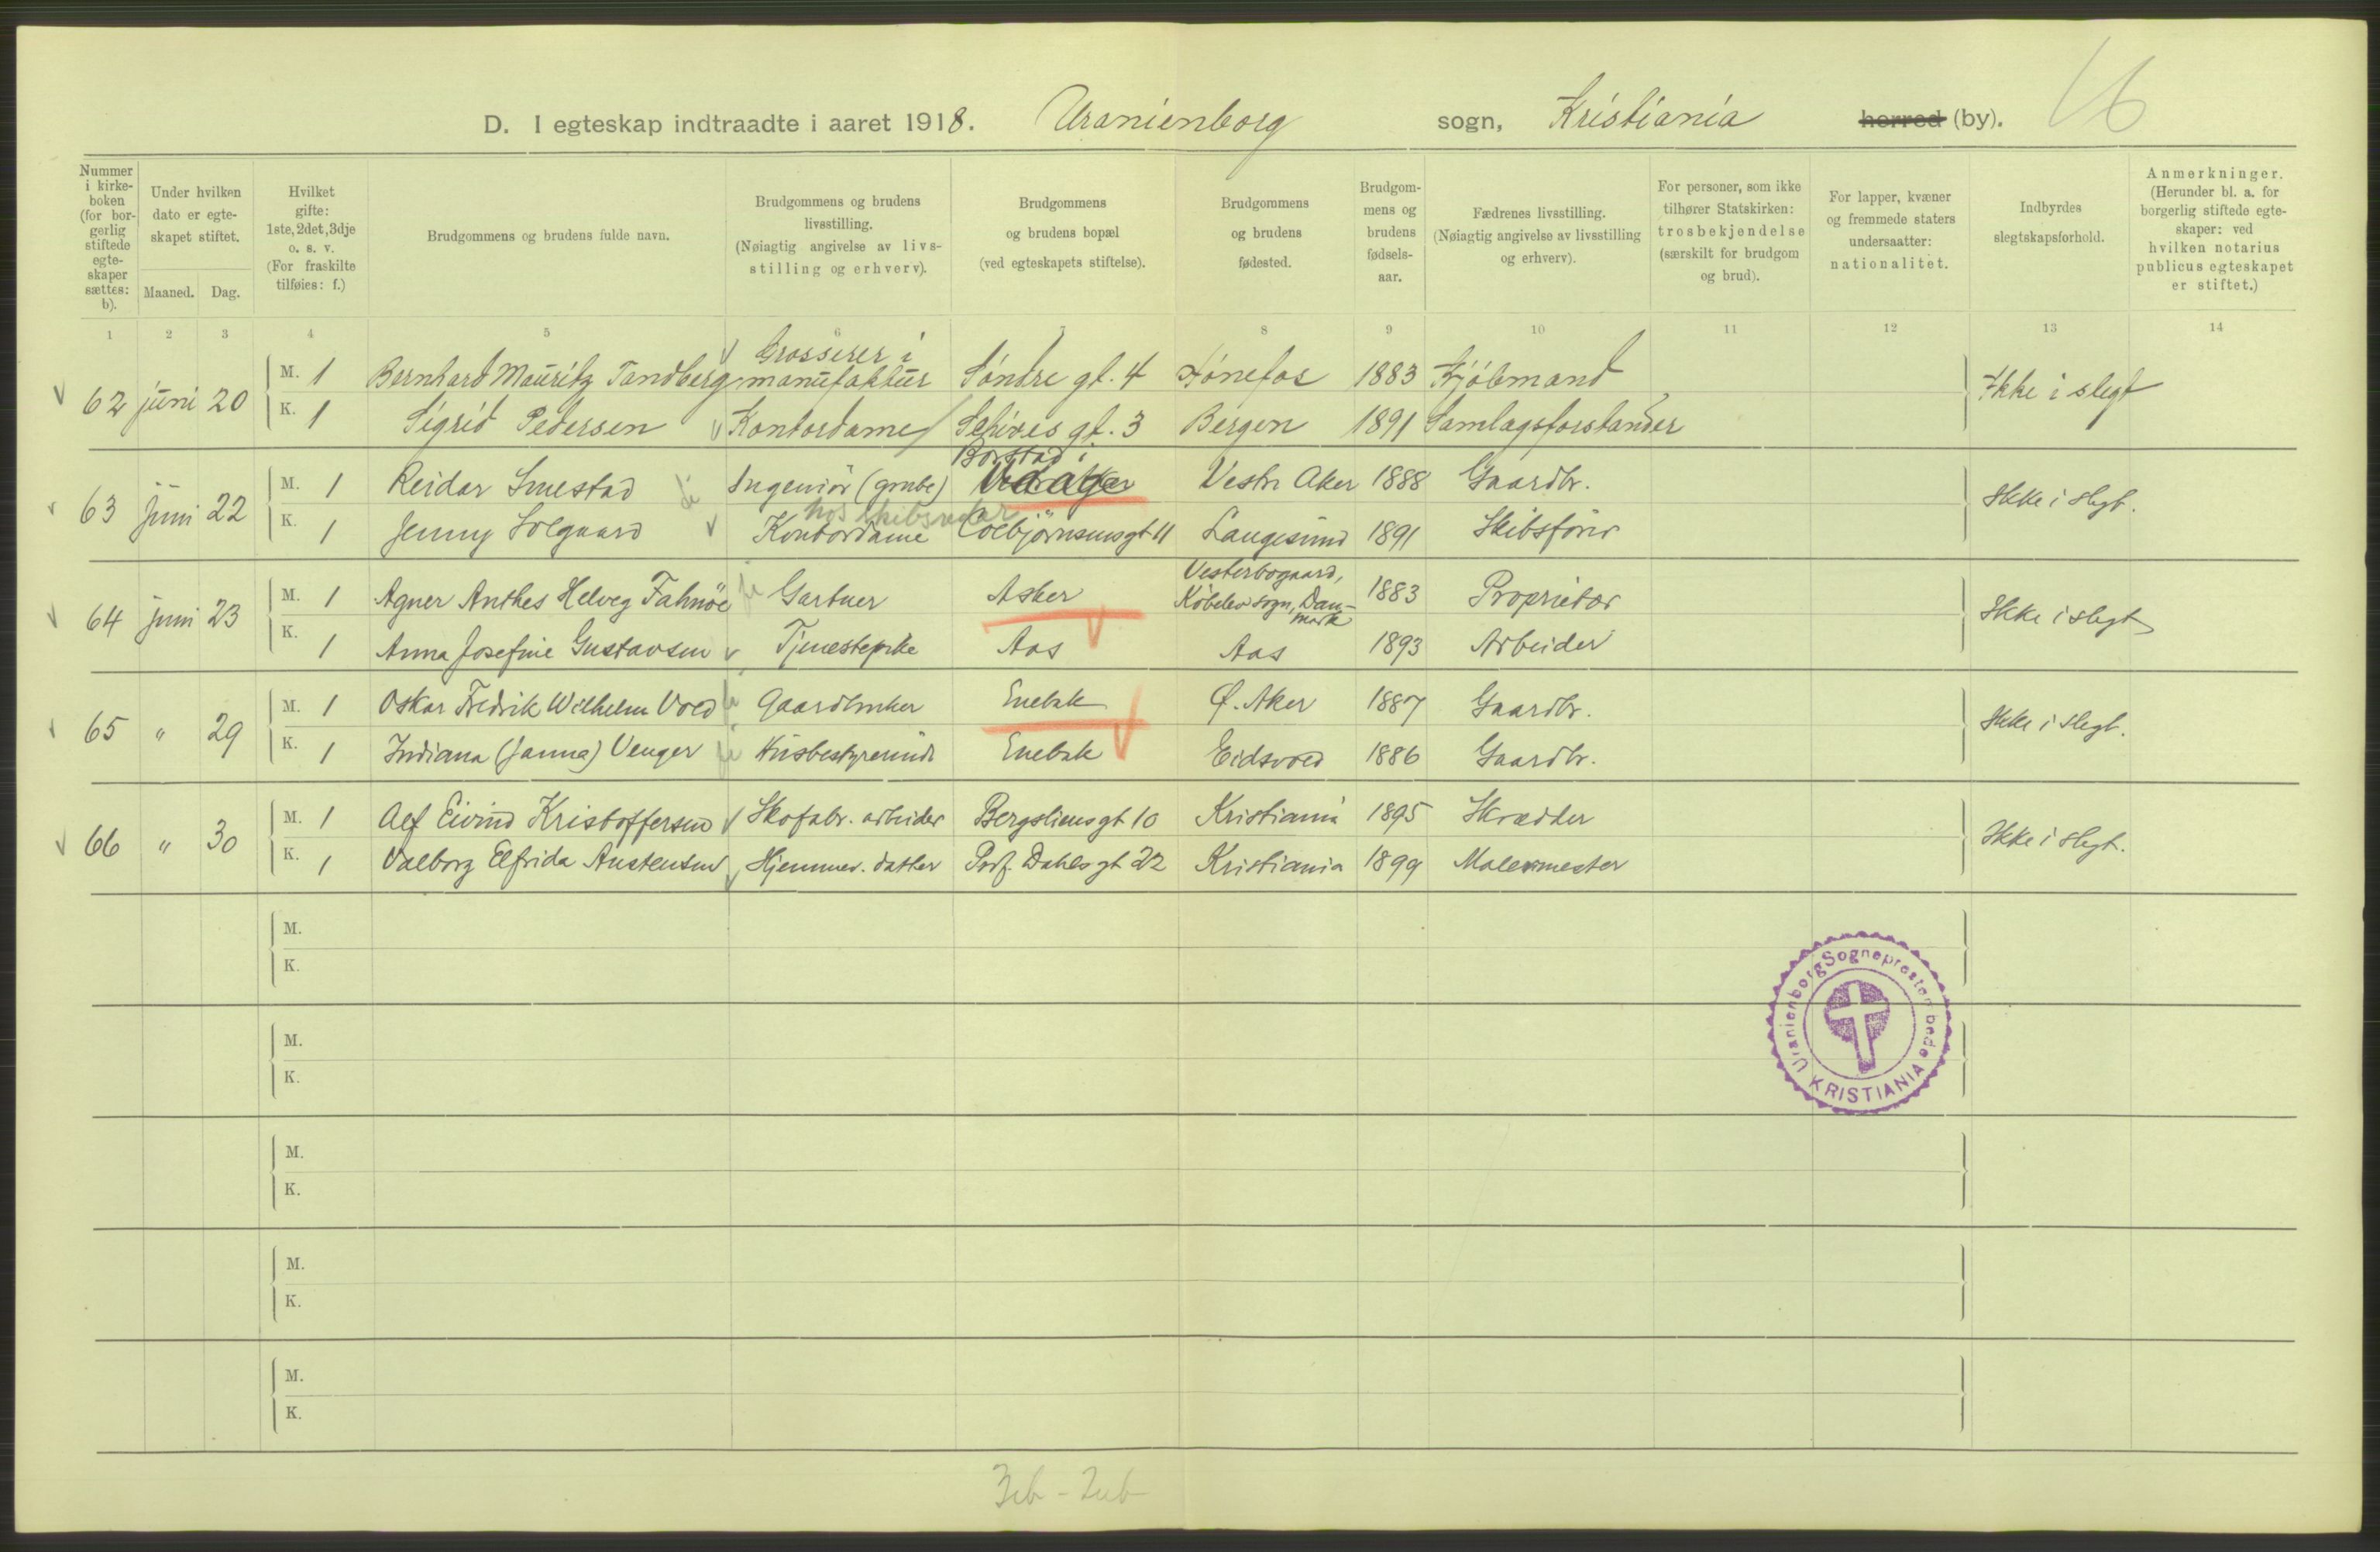 16
D. I egteskap indtraadte i aaret 1918. Uranienborg sogn, Kristiania herred (by).
Nummer i kirke-boken (for bor-gerlig stiftede egte-skaper sættes: b).
Under hvilken dato er egte-skapet stiftet.
Maaned. Dag.
Hvilket gifte: 1ste, 2det, 3dje o. s. v. (For fraskilte tilføies: f.)
Brudgommens og brudens fulde navn.
Brudgommens og brudens livsstilling. (Nøiagtig angivelse av livs-stilling og erhverv).
Brudgommens og brudens bopæl (ved egteskapets stiftelse).
Brudgommens og brudens fødested.
Brudgom-mens og brudens fødsels-aar.
Fædrenes livsstilling. (Nøiagtig angivelse av livsstilling og erhverv).
For personer, som ikke tilhører Statskirken: trosbekjendelse (særskilt for brudgom og brud).
For lapper, kvæner og fremmede staters undersaatter: nationalitet.
Indbyrdes slegtskapsforhold.
Anmerkninger. (Herunder bl. a. for borgerlig stiftede egte-skaper: ved hvilken notarius publicus egteskapet er stiftet.)
1 2 3 4 5 6 7 8 9 10 11 12 13 14
62 juni 20 M. 1 Bernhard Mauritz Tandberg Grosserer i manufaktur Søndre gt. 4 Hønefos 1883 Kjøbmand Ikke i slegt
K. 1 Sigrid Pedersen Kontordame Schives gt. 3 Bergen 1891 Samlagsforstander
63 juni 22 M. 1 Reidar Smestad Ingeniør (grube) Borstad i Vaage Vestre Aker 1888 Gaardbr. Ikke i slegt.
K. 1 Jenny Solgaard Kontordame hos skibsreder Colbjørnsensgt 11 Langesund 1891 Skibsfører
64 juni 23 M. 1 Agner Anthes Helveg Fahnøe Gartner Asker Vesterbogaard, Købelev sogn, Dan-mark 1883 Proprietær Ikke i slegt
K. 1 Anna Josefine Gustavsen Tjenestepike Aas Aas 1893 Arbeider
65 " 29 M. 1 Oskar Fredrik Wilhelm Vold Gaardbruker Enebak Ø. Aker 1887 Gaardbr. Ikke i slegt.
K. 1 Indiana (Janna) Venger Husbestyrerinde Enebak Eidsvold 1886 Gaardbr.
66 " 30 M. 1 Alf Eivind Kristoffersen Skofabr. arbeider Bergsliensgt 10 Kristiania 1895 Skrædder Ikke i slegt.
K. 1 Valborg Elfrida Austensen Hjemmev. datter Prof. Dahls gt 22 Kristiania 1899 Malermester
M.
K.
M.
K.
M.
K.
M.
K.
M.
K.
Uranienborg Sogneprestembede
KRISTIANIA